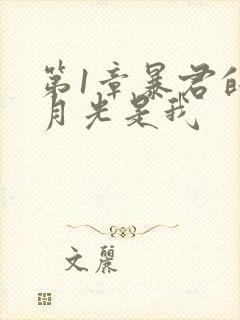 第1章暴君的
月光是我
文麗